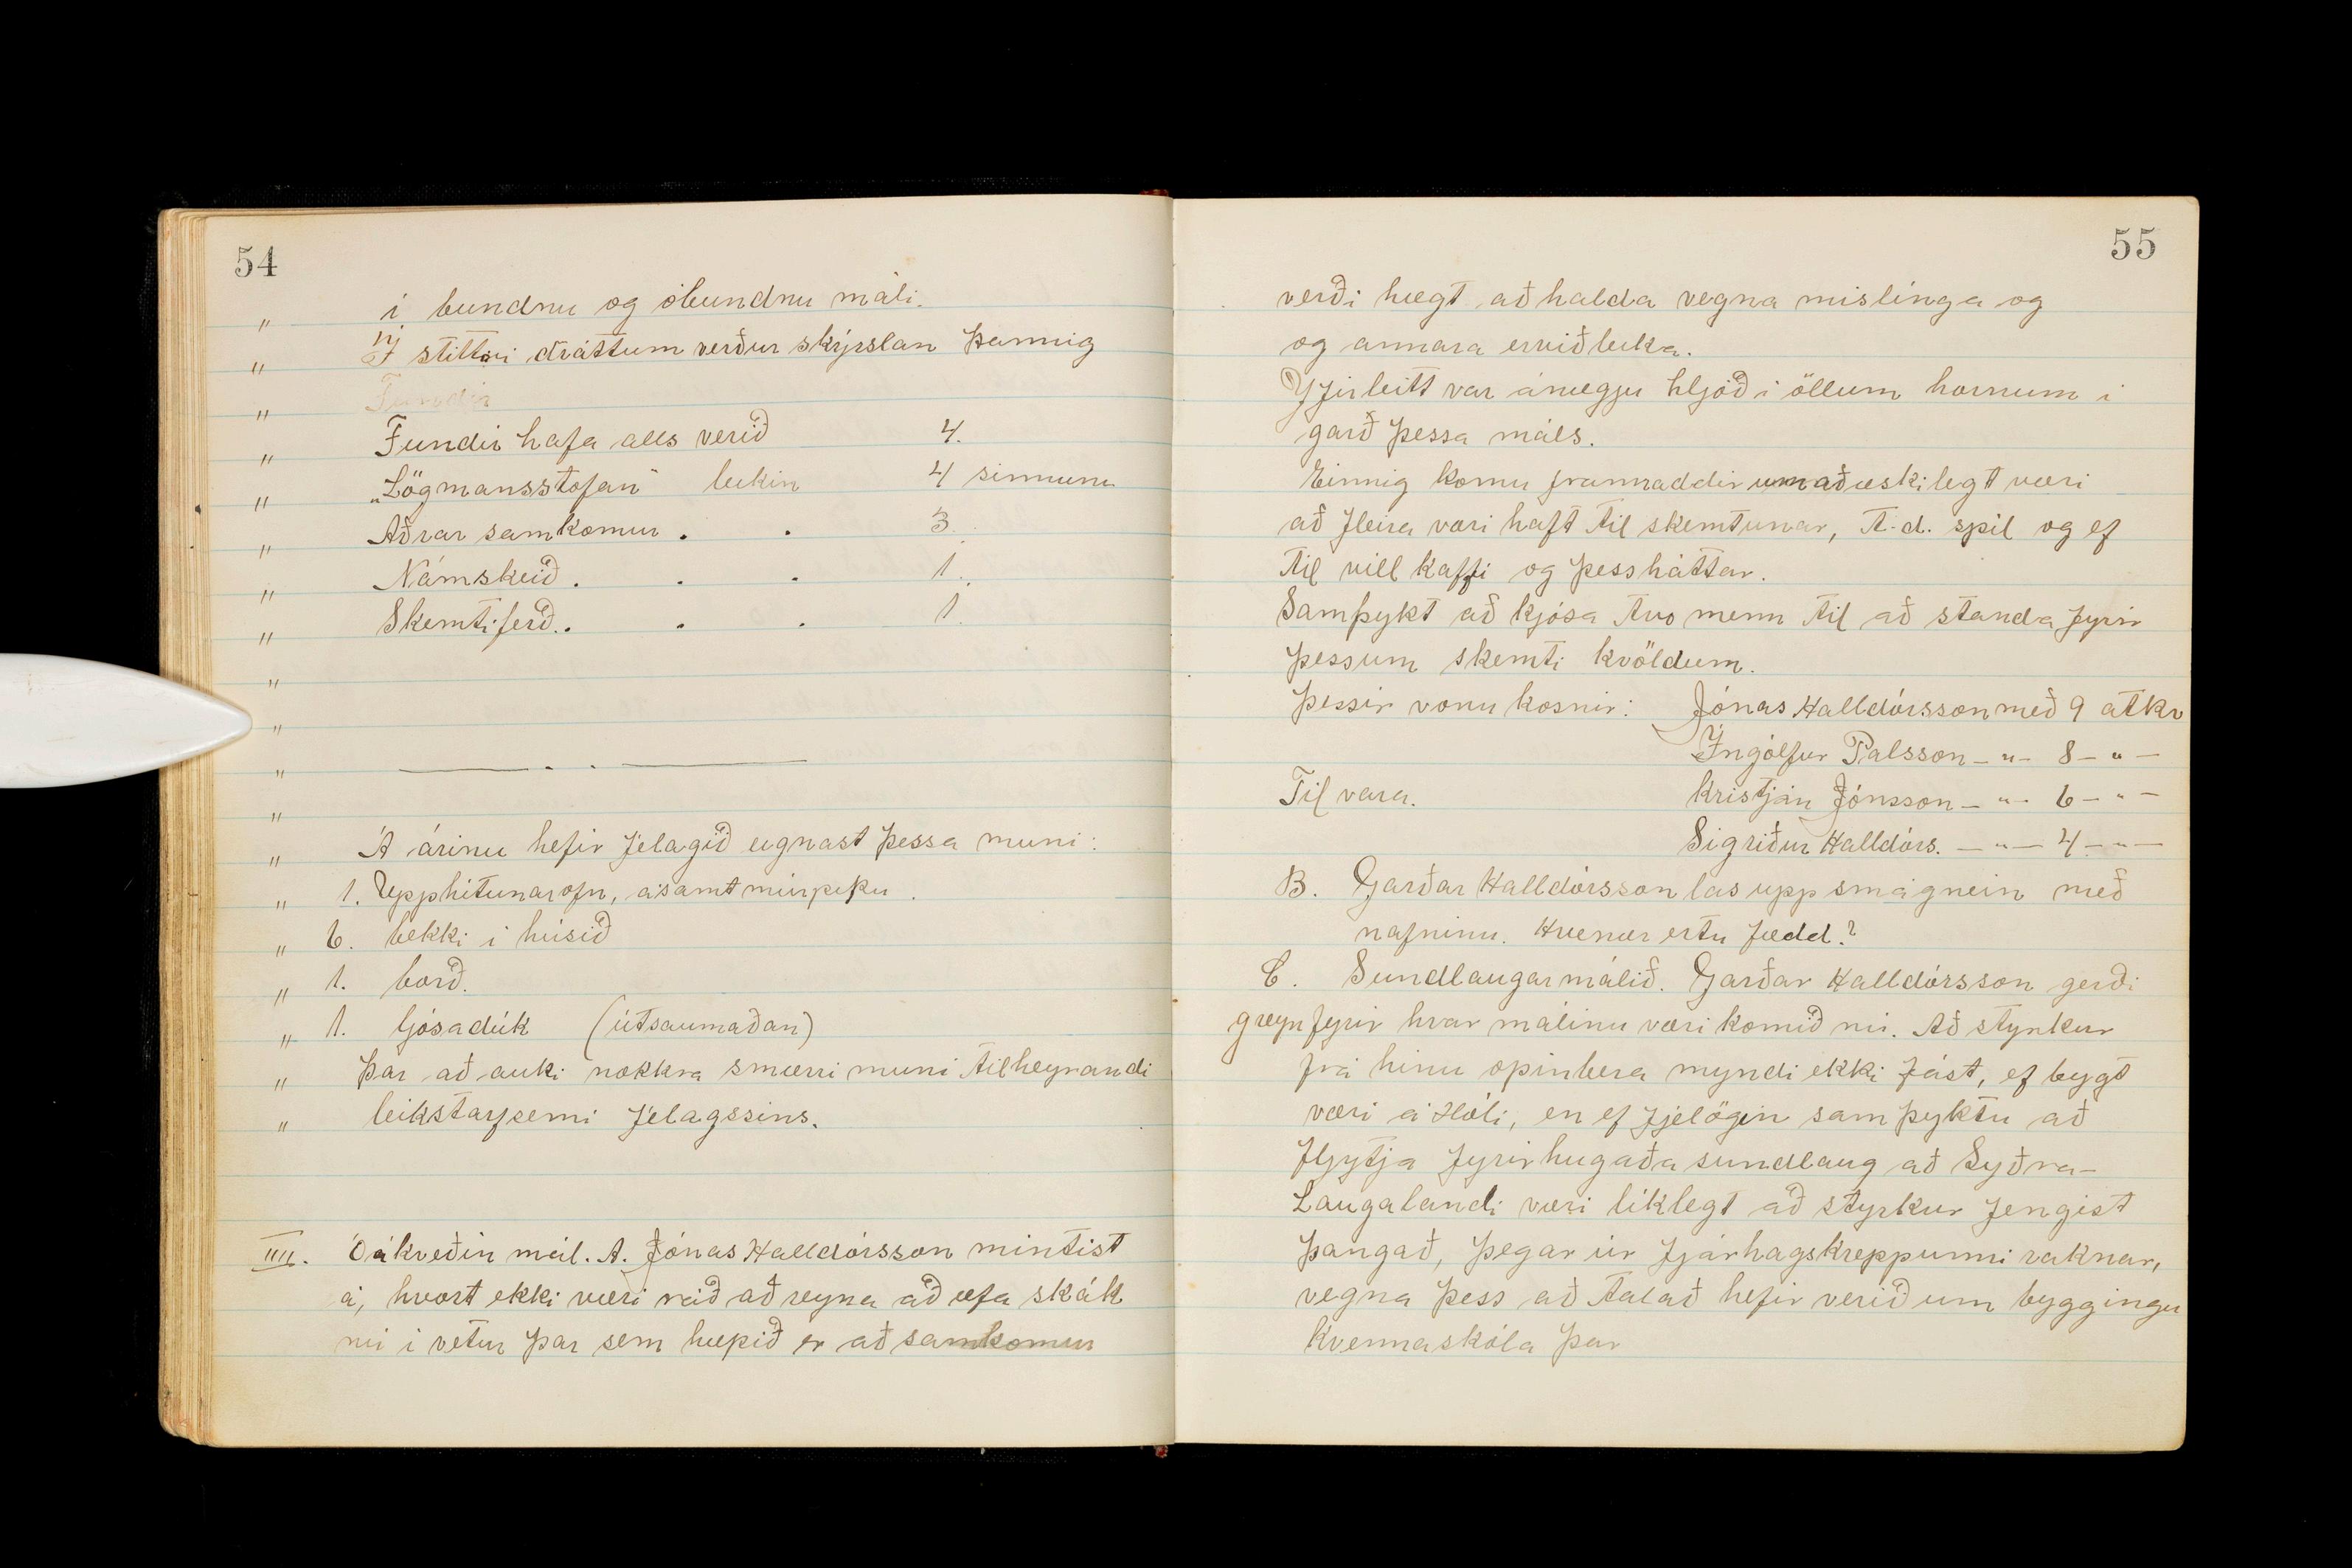 54
„ í bundnu og óbundnu máli.
„ Í stittri dráttum verður skýrslan þannig
„ Fundir
„ Fundir hafa alls verið 4.
„ „Lögmansstofan" leikin 4 sinnum
„ Aðrar samkomur . . 3.
„ Námskeið . . . 1.
„ Skemtiferð. . . . 1.
„
„
„
„
„ Á árinu hefir fjelagið eignast þessa muni:
„ 1. Upphitunarofn, ásamt múrpípu.
„ 6. bekki í húsið
„ 1. borð.
„ 1. ljósadúk (útsaumaðan)
„ Þar að auki nokkra smærri muni tilheyrandi
„ leikstarfsemi fjelagssins.
IIII. Óákveðin mál. A. Jónas Halldórsson mintist
á, hvort ekki væri ráð að reyna að æfa skák
nú í vetur þar sem hæpið er að samkomur
55
verði hægt að halda vegna mislinga og
og annara erviðleika.
Yfirleitt var ánægju hljóð í öllum hornum í
garð þessa máls.
Einnig komu framraddir um að æskilegt væri
að fleira væri haft til skemtunar, t.d. spil og ef
til vill kaffi og þessháttar.
Samþykt að kjósa tvo menn til að standa fyrir
þessum skemti kvöldum.
Þessir voru kosnir: Jónas Halldórsson með 9 atkv
Ingólfur Pálsson – „ – 8 – „ –
Til vara. Kristján Jónsson – „ – 6 – „ –
Sigríður Halldórs. – „ – 4 – „ –
B. Garðar Halldórsson las upp smágrein með
nafninu. Hvenær ertu fædd?
C. Sundlaugarmálið. Garðar Halldórsson gerði
greyn fyrir hvar málinu væri komið nú. Að styrkur
frá hinu opinbera myndi ekki fást, ef bygt
væri á Hóli, en ef fjelögin samþyktu að
flytja fyrirhugaða sundlaug að Syðra-
Laugalandi væri líklegt að styrkur fengist
þangað, þegar úr fjárhagskreppunni raknar,
vegna þess að talað hefir verið um byggingu
Kvennaskóla þar